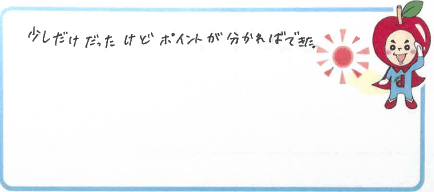 少しだけだったけどポイントが分かればできた。